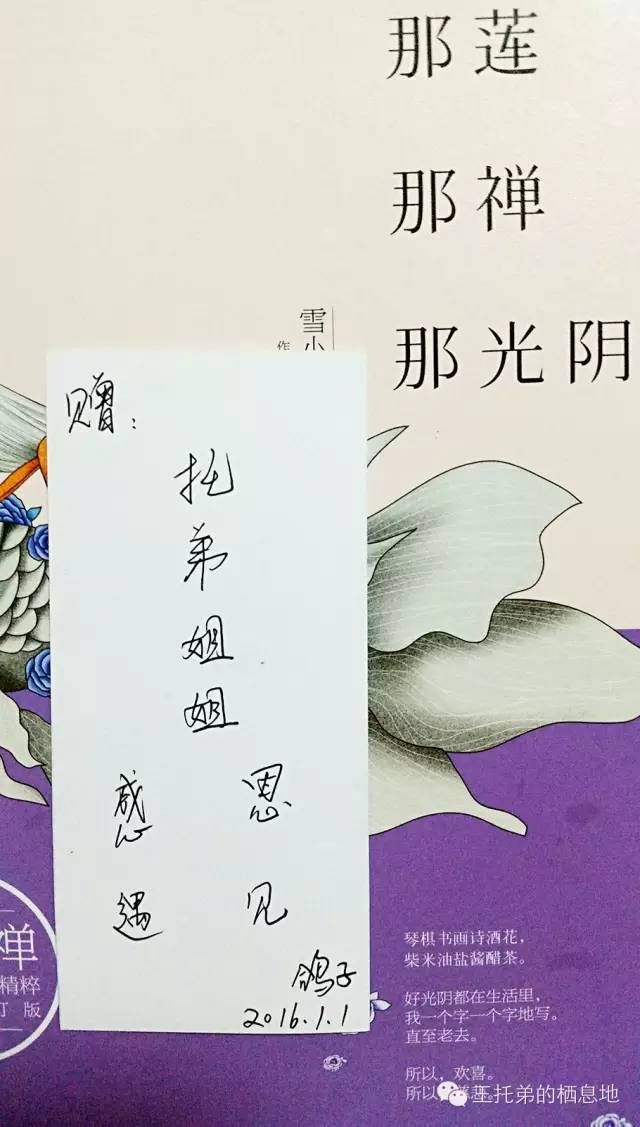 那莲
那禅
那光阴
雪小
作
赠:
托
弟
姐
姐
感恩
遇见
鸽子
2016.1.1
禅
精粹
订版
琴棋书画诗酒花，
柴米油盐酱醋茶。
好光阴都在生活里，
我一个字一个字地写。
直至老去。
所以，欢喜。
所以，
王托弟的栖息地